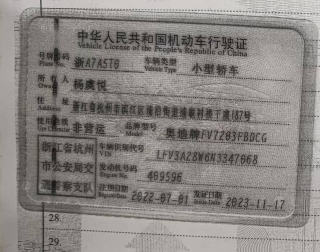 中华人民共和国机动车行驶证
Vehicle License of the People's Republic of China
号牌号码 浙A7A5T0 车辆类型 小型轿车
Plate No. Vehicle Type
所有人 杨虞悦
Owner
住址 浙江省杭州市滨江区浦沿街道 187号
Address
使用性质 非营运 品牌型号 奥迪牌FV7203FBDCG
Use Character Model
浙江省杭州 车辆识别代号 LFV3A28W6N3347068
VIN
市公安局交 发动机号码 409596
Engine No.
通警察支队 注册日期 2022-07-01 发证日期 2023-11-17
Register Date Issue Date
28.
29.